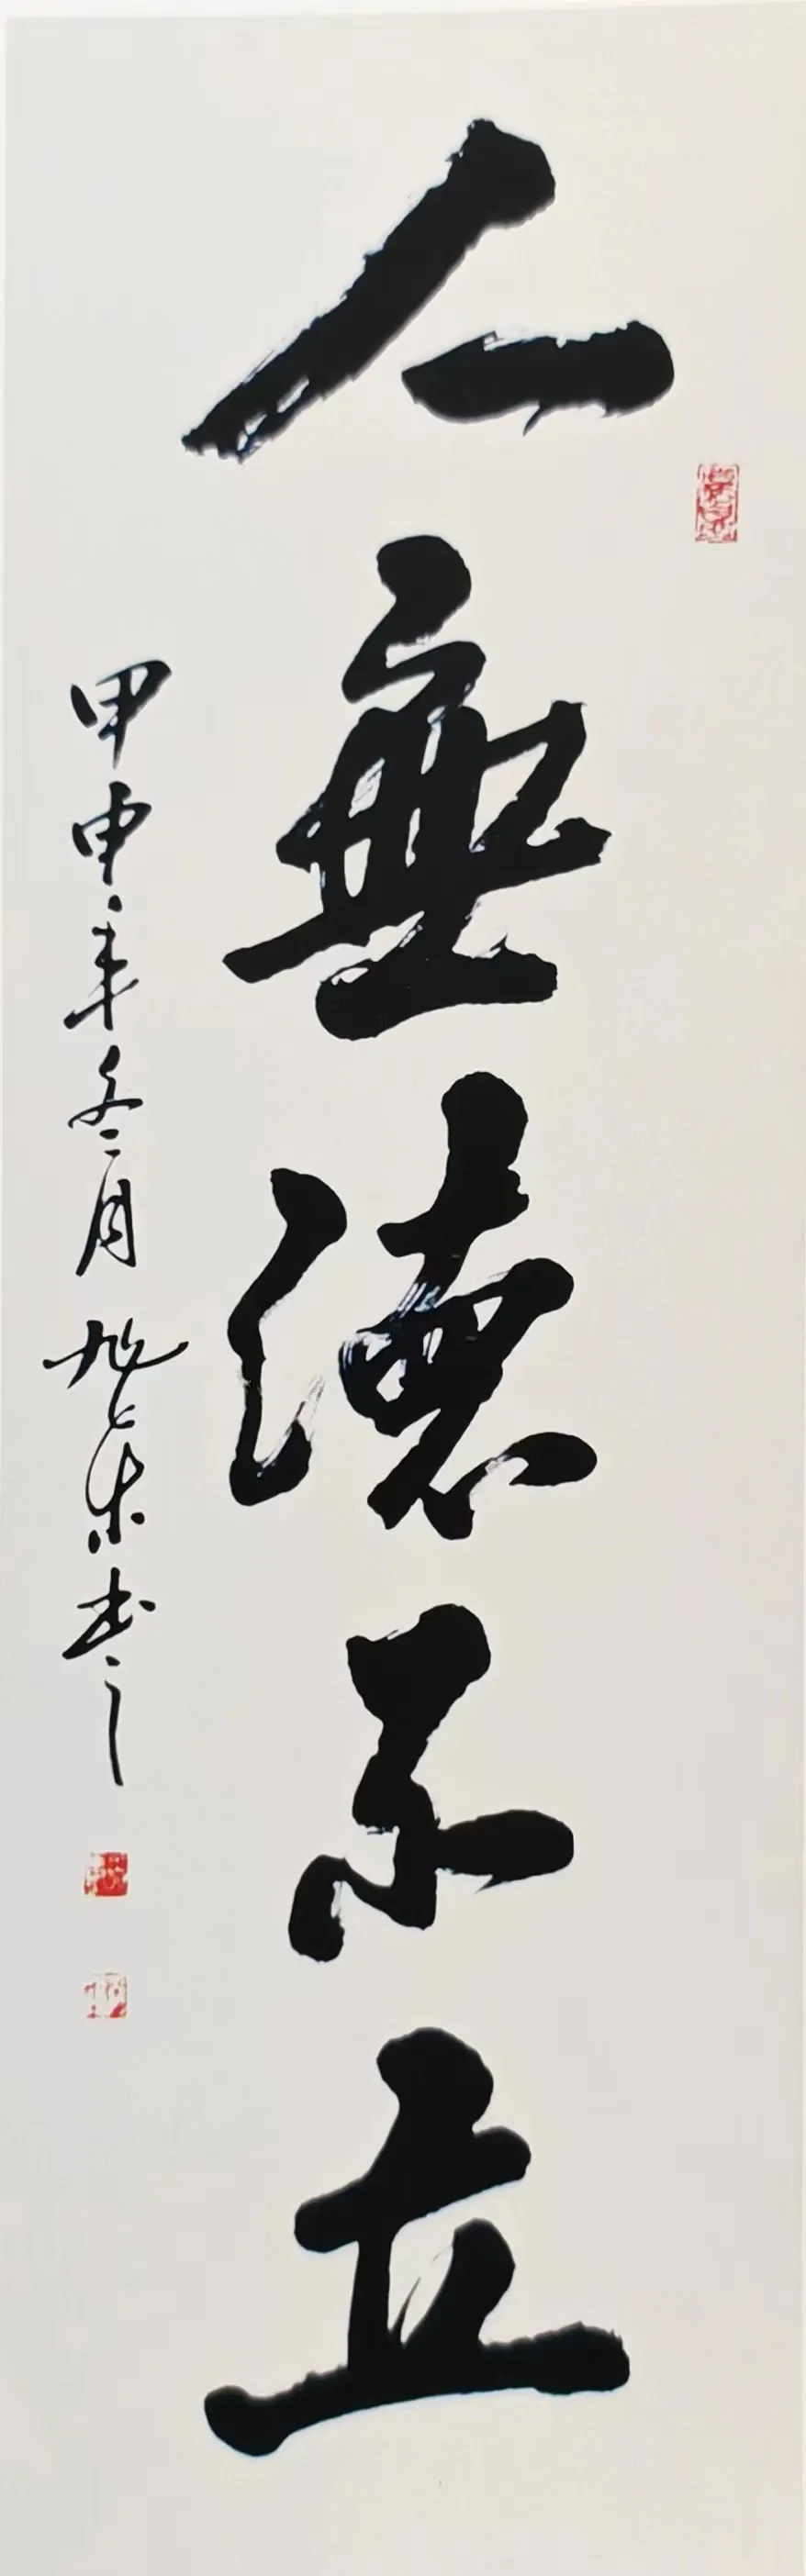 人無德不立
甲申年冬月旭東書